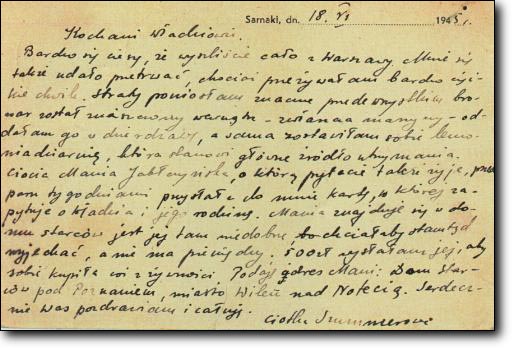 Sarnaki, dn. 18. VI 1945 r.
Kochani Władziowie.
Bardzo się cieszę, że wyszliście cało z Warszawy. Mnie się
także udało przetrwać, chociaż przeżywałam bardzo cięż-
kie chwile. Straty poniosłam znaczne przede wszystkim bro-
war został zniszczony warsztat - maszyny - od-
dałam go w dzierżawę, a sama zostawiłam sobie lemo-
niadziarnię, która stanowi główne źródło utrzymania.
Ciocia Mania Jabłczyńska, o którą pytacie także żyje, przed
paru tygodniami przysłała do mnie kartę, w której za-
pytuje o Władzia i jego rodzinę. Mania znajduje się w do-
mu starców jest jej tam niedobrze, bo chciałaby stamtąd
wyjechać, a nie ma pieniędzy. 500 zł wysłałam jej, aby
sobie kupiła coś z żywności. Podaję adres Mani: Dom Star-
ców pod Poznaniem, miasto Wieleń nad Notecią. Serdecz-
nie was pozdrawiam i całuję.
ciotka